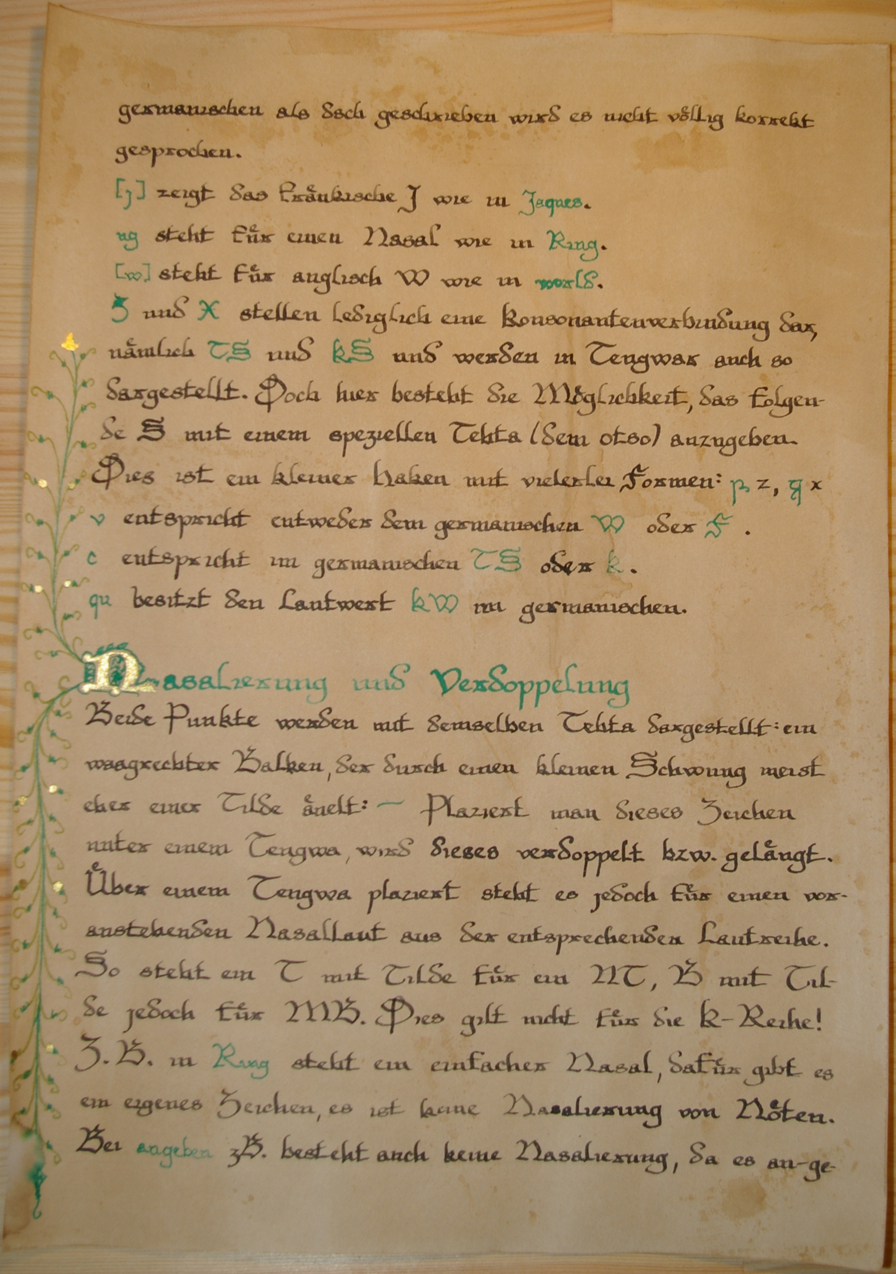 germanischen als dsch geschrieben wird es nicht völlig korrekt
gesprochen.
[j] zeigt das fränkische J wie in Jaques.
ng steht für einen Nasal wie in Ring.
[w] steht für anglisch W wie in world.
Z und X stellen lediglich eine Konsonantenverbindung dar,
nämlich TS und kS und werden in Tengwar auch so
dargestellt. Doch hier besteht die Möglichkeit, das folgen-
de S mit einem speziellen Tehta (dem otso) anzugeben.
Dies ist ein kleiner Haken mit vielerlei Formen: z, x
v entspricht entweder dem germanischen W oder F.
c entspricht im germanischen TS oder k.
qu besitzt den Lautwert kW im germanischen.
Nasalierung und Verdoppelung
Beide Punkte werden mit demselben Tehta dargestellt: ein
waagrechter Balken, der durch einen kleinen Schwung meist
eher einer Tilde änelt: ~ Plaziert man dieses Zeichen
unter einem Tengwa, wird dieses verdoppelt bzw. gelängt.
Über einem Tengwa plaziert steht es jedoch für einen vor-
anstehenden Nasallaut aus der entsprechenden Lautreihe.
So steht ein T mit Tilde für ein NT, B mit Til-
de jedoch für MB. Dies gilt nicht für die k-Reihe!
Z.B. in Ring steht ein einfacher Nasal, dafür gibt es
ein eigenes Zeichen, es ist keine Nasalierung von Nöten.
Bei angeben zB. besteht auch keine Nasalierung, da es an-ge-